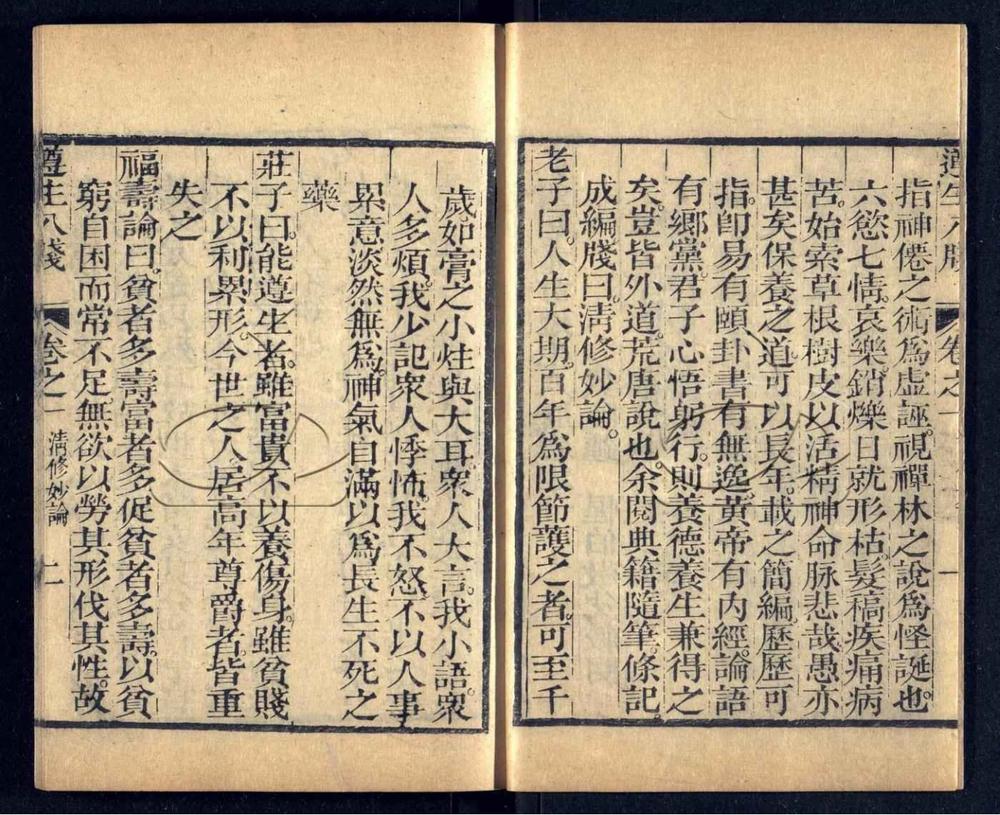 遵生八牋
卷之一
一
指神僊之術爲虛誣。視禪林之說爲怪誕也。
六慾七情。哀樂銷爍。日就形枯。髮稿疾痛病
苦。始索草根樹皮。以活精神命脉。悲哉愚亦
甚矣。保養之道。可以長年。載之簡編。歷歷可
指。卽易有頤卦。書有無逸。黃帝有內經。論語
有鄉黨。君子心悟躬行。則養德養生兼得之
矣。豈皆外道。荒唐說也。余閱典籍。隨筆條記。
成編。牋曰淸修妙論。
老子曰。人生大期。百年爲限。節護之者。可至千
歲。如膏之小炷與大耳。衆人大言。我小語。衆
人多煩。我少記。衆人悸怖。我不怒。不以人事
累意。淡然無爲。神氣自滿。以爲長生不死之
藥
莊子曰。能遵生者。雖富貴不以養傷身。雖貧賤
不以利累形。今世之人。居高年尊爵者。皆重
失之
福壽論曰。貧者多壽。富者多促。貧者多壽。以貧
窮自困而常不足。無欲以勞其形。伐其性。故
遵生八牋
卷之一
淸修妙論
二